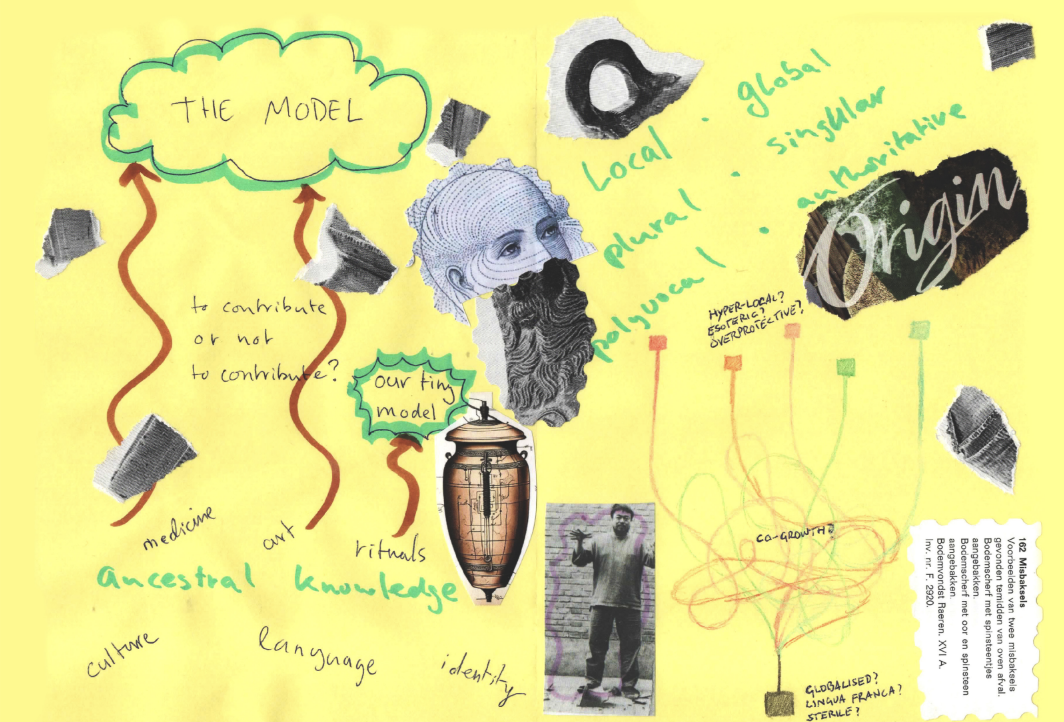 THE MODEL
to contribute
or not
to contribute?
our tiny
model
medicine
art
rituals
ancestral knowledge
culture
language
identity
Local · global
plural · singular
polyvocal · authoritative
Origin
HYPER-LOCAL?
ESOTERIC?
OVERPROTECTIVE?
CO-GROWTH?
GLOBALISED?
LINGUA FRANCA?
STERILE?
162 Misbaksels
Voorbeelden van twee misbaksels
gevonden temidden van oven afval.
Bodemscherf met spinsteentjes
aangebakken.
Bodemscherf met oor en spinsteen
aangebakken.
Bodemvondst Raeren. XVI A.
Inv. nr. F. 2920.